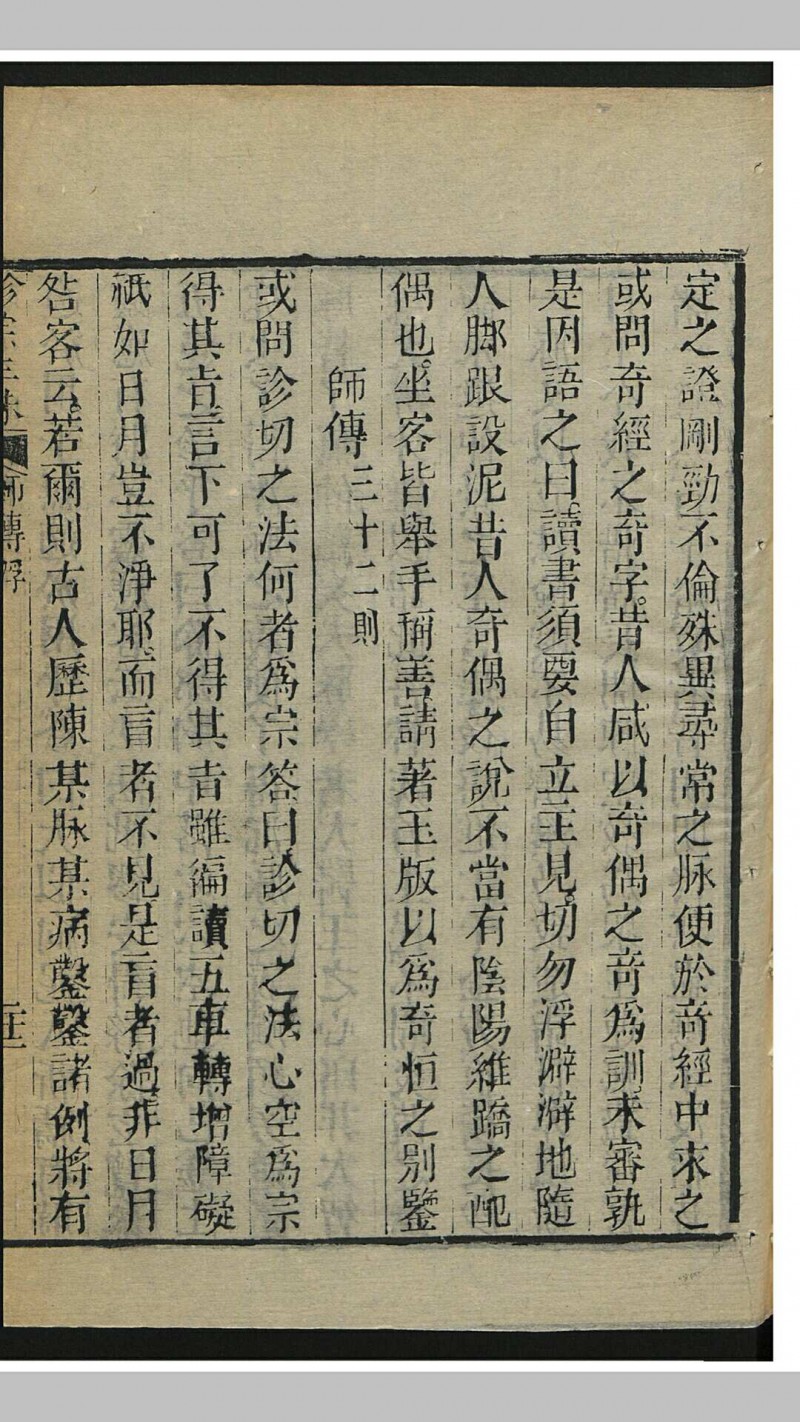 定之證剛勁不倫殊異尋常之脉便於奇經中求之
或問奇經之奇字昔人咸以奇偶之奇爲訓未審孰
是因語之曰讀書須要自立主見切勿浮澼澼地隨
人脚跟設泥昔人奇偶之說不當有陰陽維蹻之配
偶也坐客皆舉手稱善請著玉版以爲奇恒之別鑒
師傳三十二則
或問診切之法何者爲宗答曰診切之法心空爲宗
得其旨言下可了不得其旨雖徧讀五車轉增障礙
祇如日月豈不淨耶而盲者不見是盲者過非日月
咎客云若爾則古人歷陳某脉某病鑿鑿諸例將有
診宗三昧 師傳 二十二